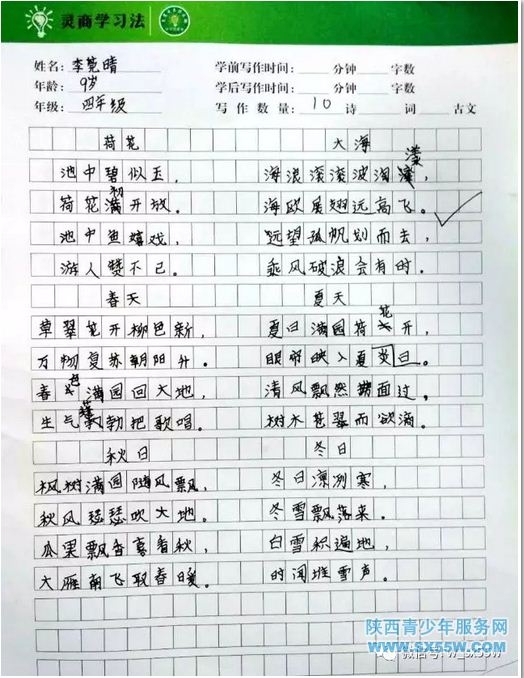 灵商学习法
姓名：李莞晴 学前写作时间： 分钟 字数
年龄：9岁 学后写作时间： 分钟 字数
年级：四年级 写作数量：10 诗 词 古文
荷花
池中碧似玉，
荷花初开放。
池中鱼嬉戏，
游人赞不已。
大海
海浪滚滚波涌，
海欧展翅远高飞。
远望孤帆划而去，
乘风破浪会有时。
春天
草翠花开柳色新，
万物复苏朝阳升。
春色满园回大地，
生气勃把歌唱。
夏天
夏日满园荷花开，
眼帘映入夏炎日。
清风飘然拂面过，
树木苍翠而欲滴。
秋日
枫树满园随风飘，
秋风瑟瑟吹大地。
瓜果飘香喜看秋，
大雁南飞取春暖。
冬日
冬日凛冽寒，
冬雪飘落来。
白雪积遍地，
时闻堆雪声。
陕西青少年服务网
www.sx55w.com
微信号：W_sx55w